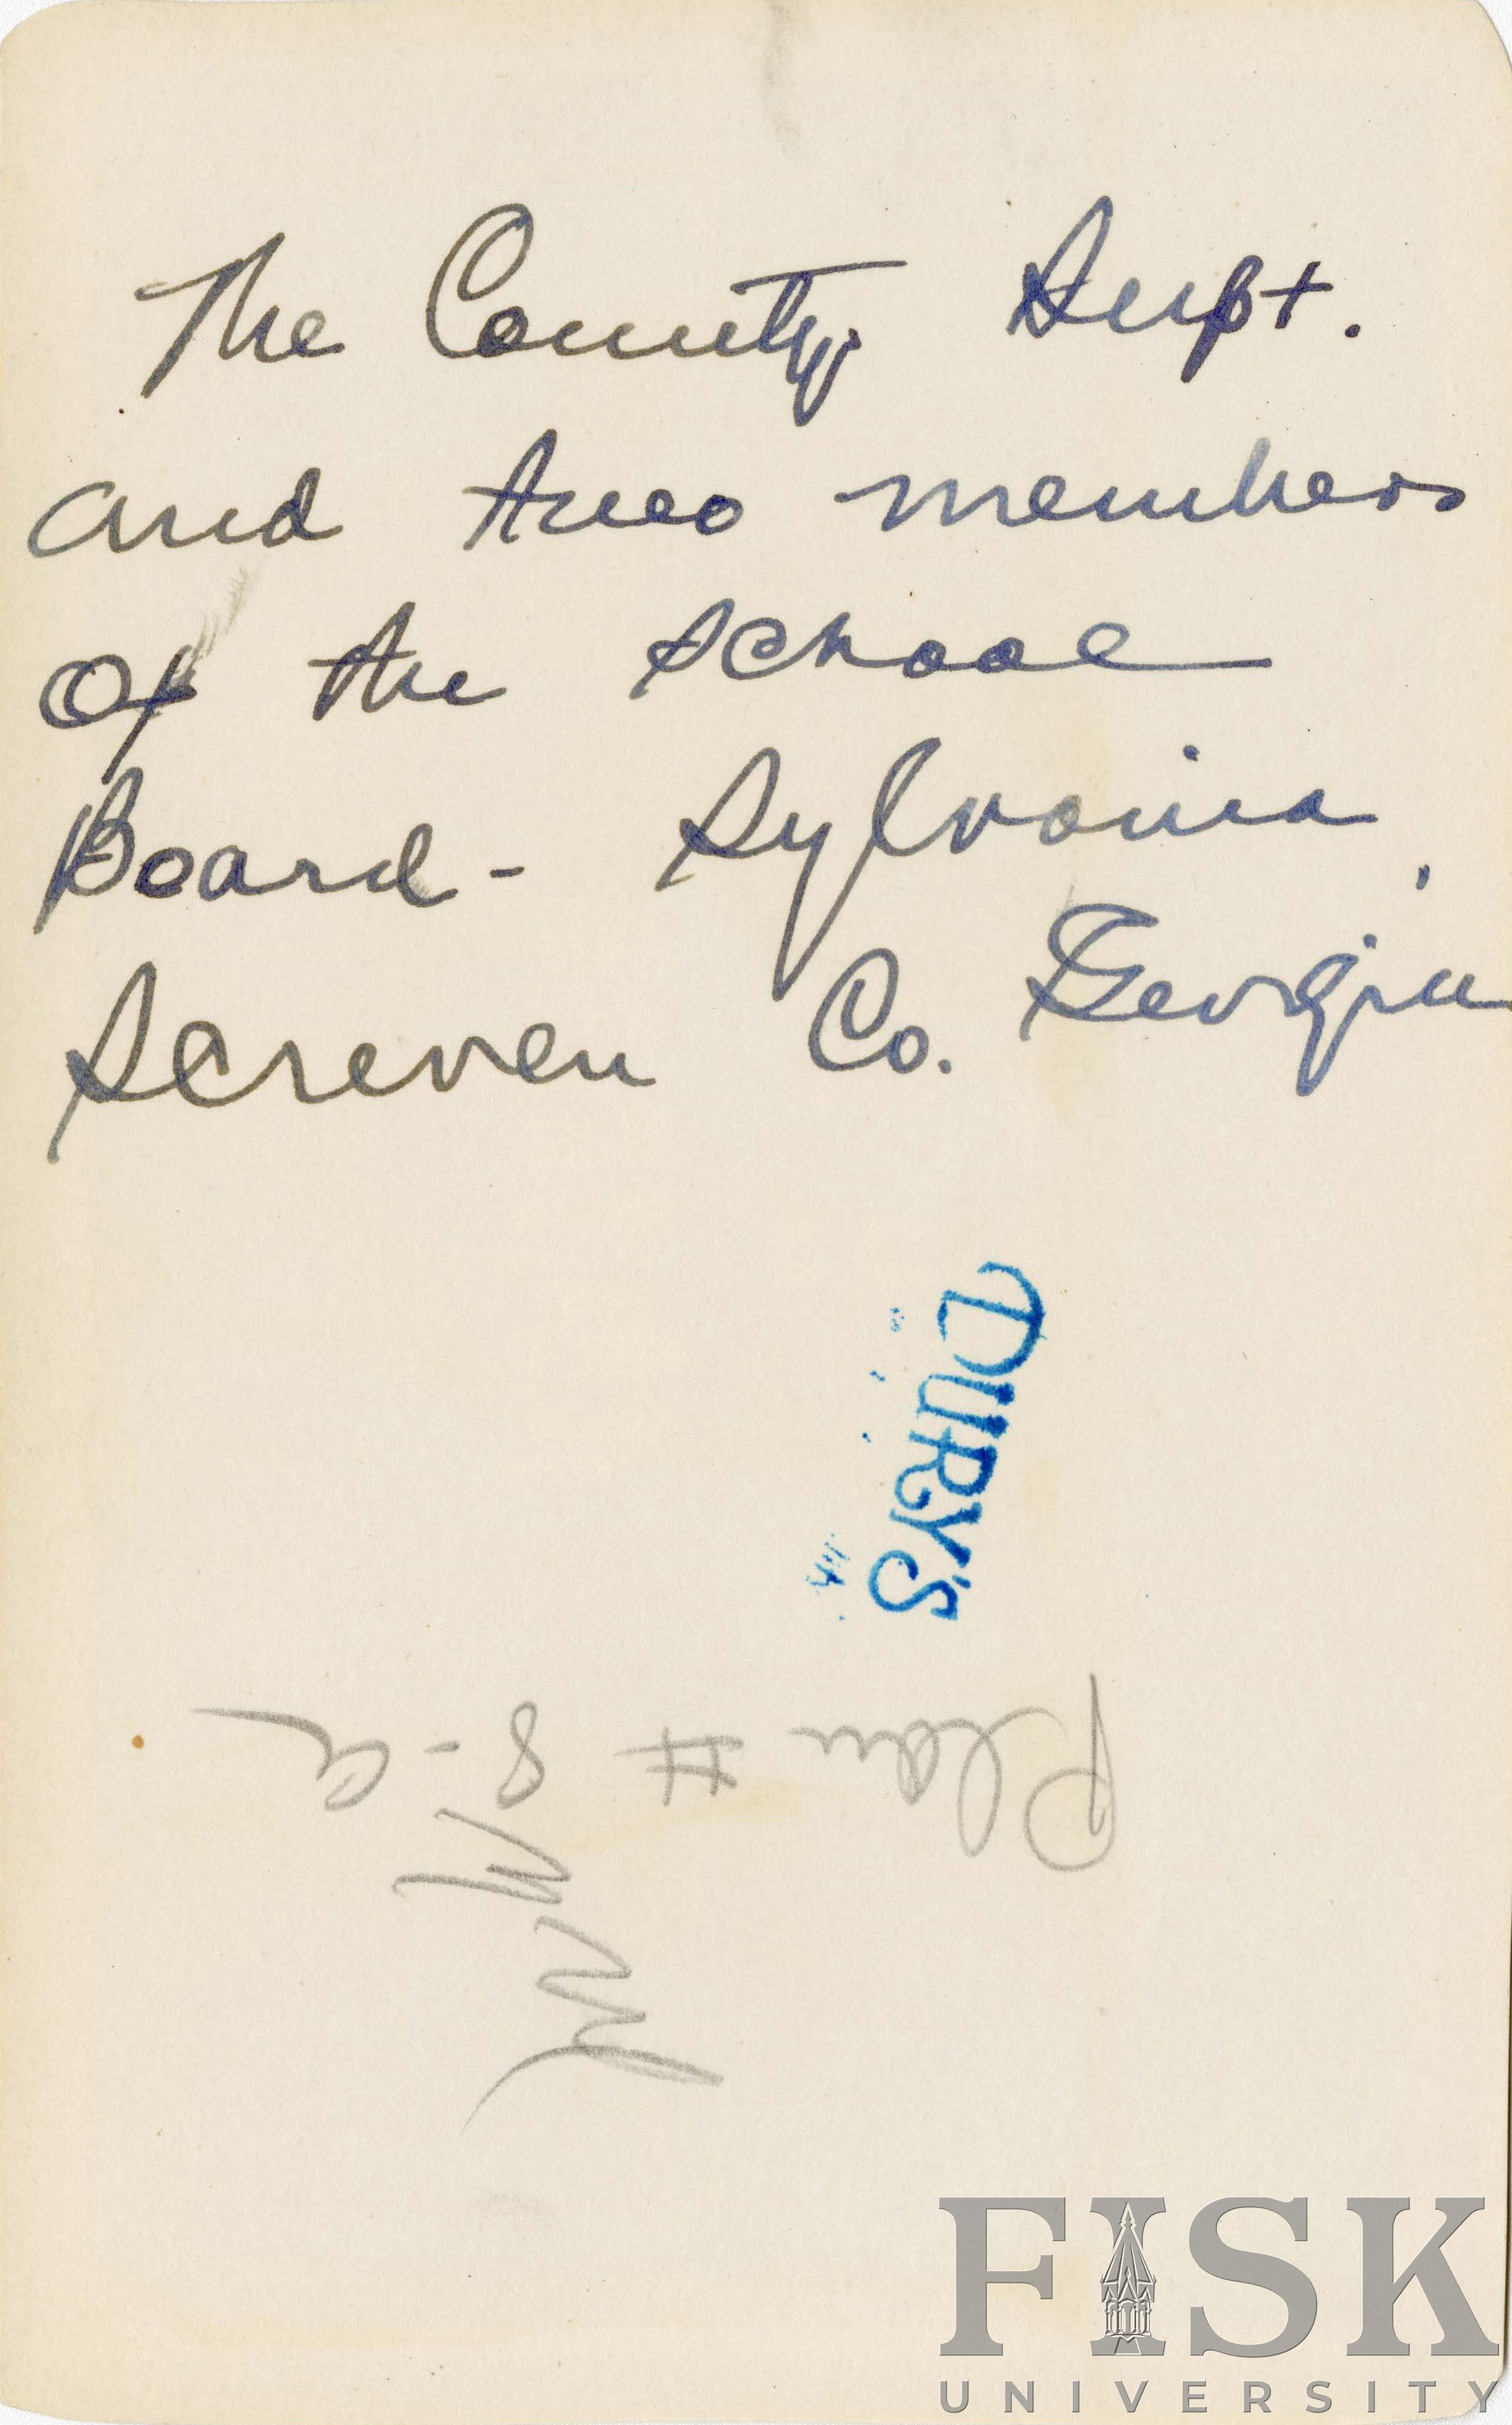 The County Supt.
and two members
Of the School
Board - Sylvania,
Screven Co. Georgia
DURY'S
Plan # 8-a
FISK
UNIVERSITY